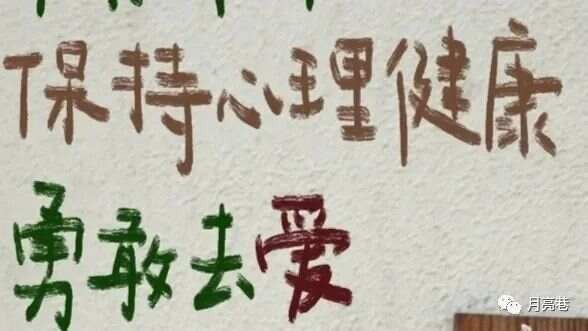 保持心理健康
勇敢去爱
月亮巷